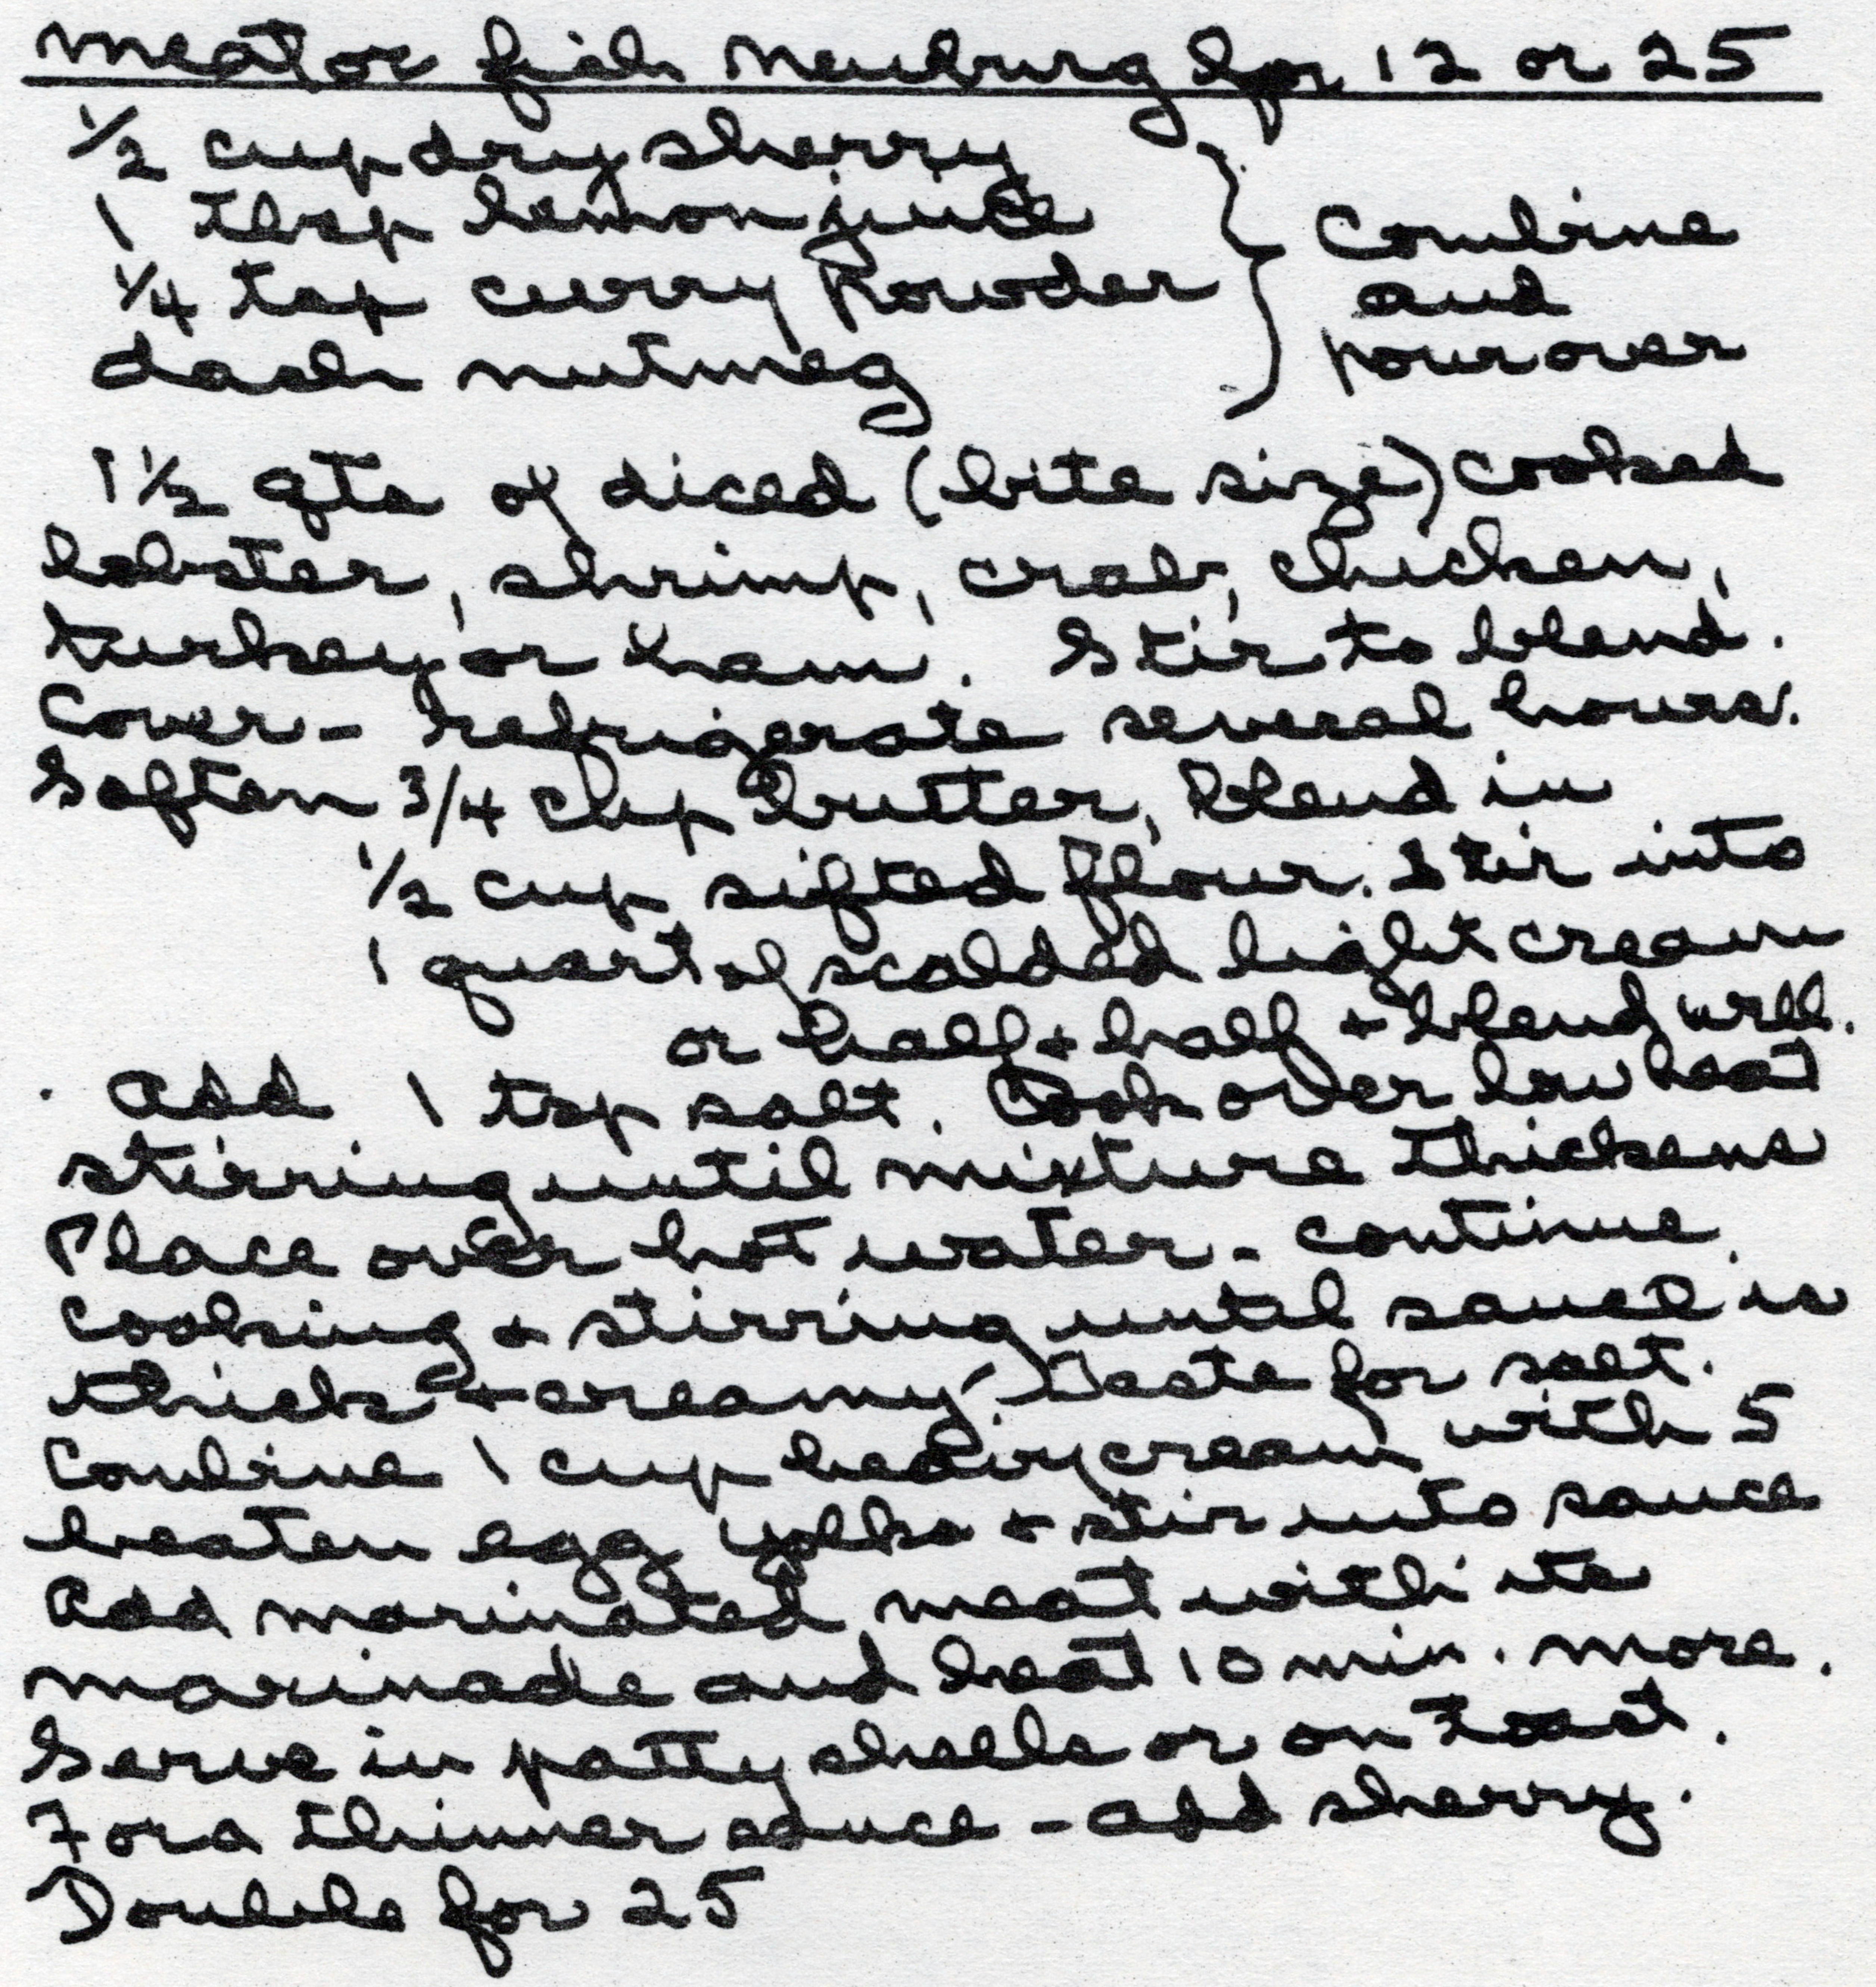 Meat or fish Newburg for 12 or 25
1/2 cup dry sherry
1 tbsp lemon juice
1/4 tsp curry powder
dash nutmeg
} Combine
and
pour over
1 1/2 qts of diced (bite size) cooked
lobster, shrimp, crab, chicken,
turkey or ham. Stir to blend.
Cover - refrigerate several hours.
Soften 3/4 cup butter, blend in
1/2 cup sifted flour. Stir into
1 quart of scalded light cream
or half + half + blend well.
. Add 1 tsp salt. Cook over low heat
stirring until mixture thickens
Place over hot water - continue
cooking + stirring until sauce is
thick + creamy. Taste for salt.
Combine 1 cup heavy cream with 5
beaten egg yolks + stir into sauce
Add marinated meat with its
marinade and heat 10 min. more.
Serve in patty shells or on toast.
For a thinner sauce - add sherry.
Double for 25